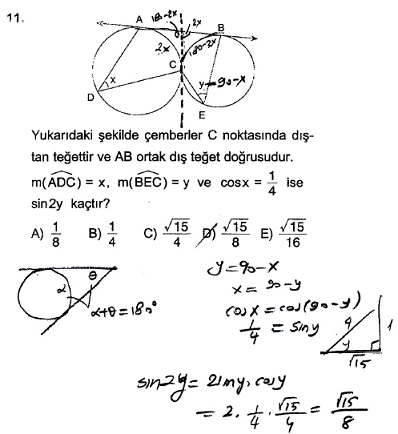 11.
A
180-2x
2x
B
2x
180-2x
C
x
y
90-x
D
E
Yukarıdaki şekilde çemberler C noktasında dış-
tan teğettir ve AB ortak dış teğet doğrusudur.
m(ADC) = x, m(BEC) = y ve cosx = 1/4 ise
sin2y kaçtır?
A) 1/8 B) 1/4 C) √15/4 D) √15/8 E) √15/16
θ
α
α+θ=180°
y=90-x
x=90-y
cosx=cos(90-y)
1/4 = siny
4
1
y
√15
sin2y=2siny.cosy
=2.1/4.√15/4=√15/8